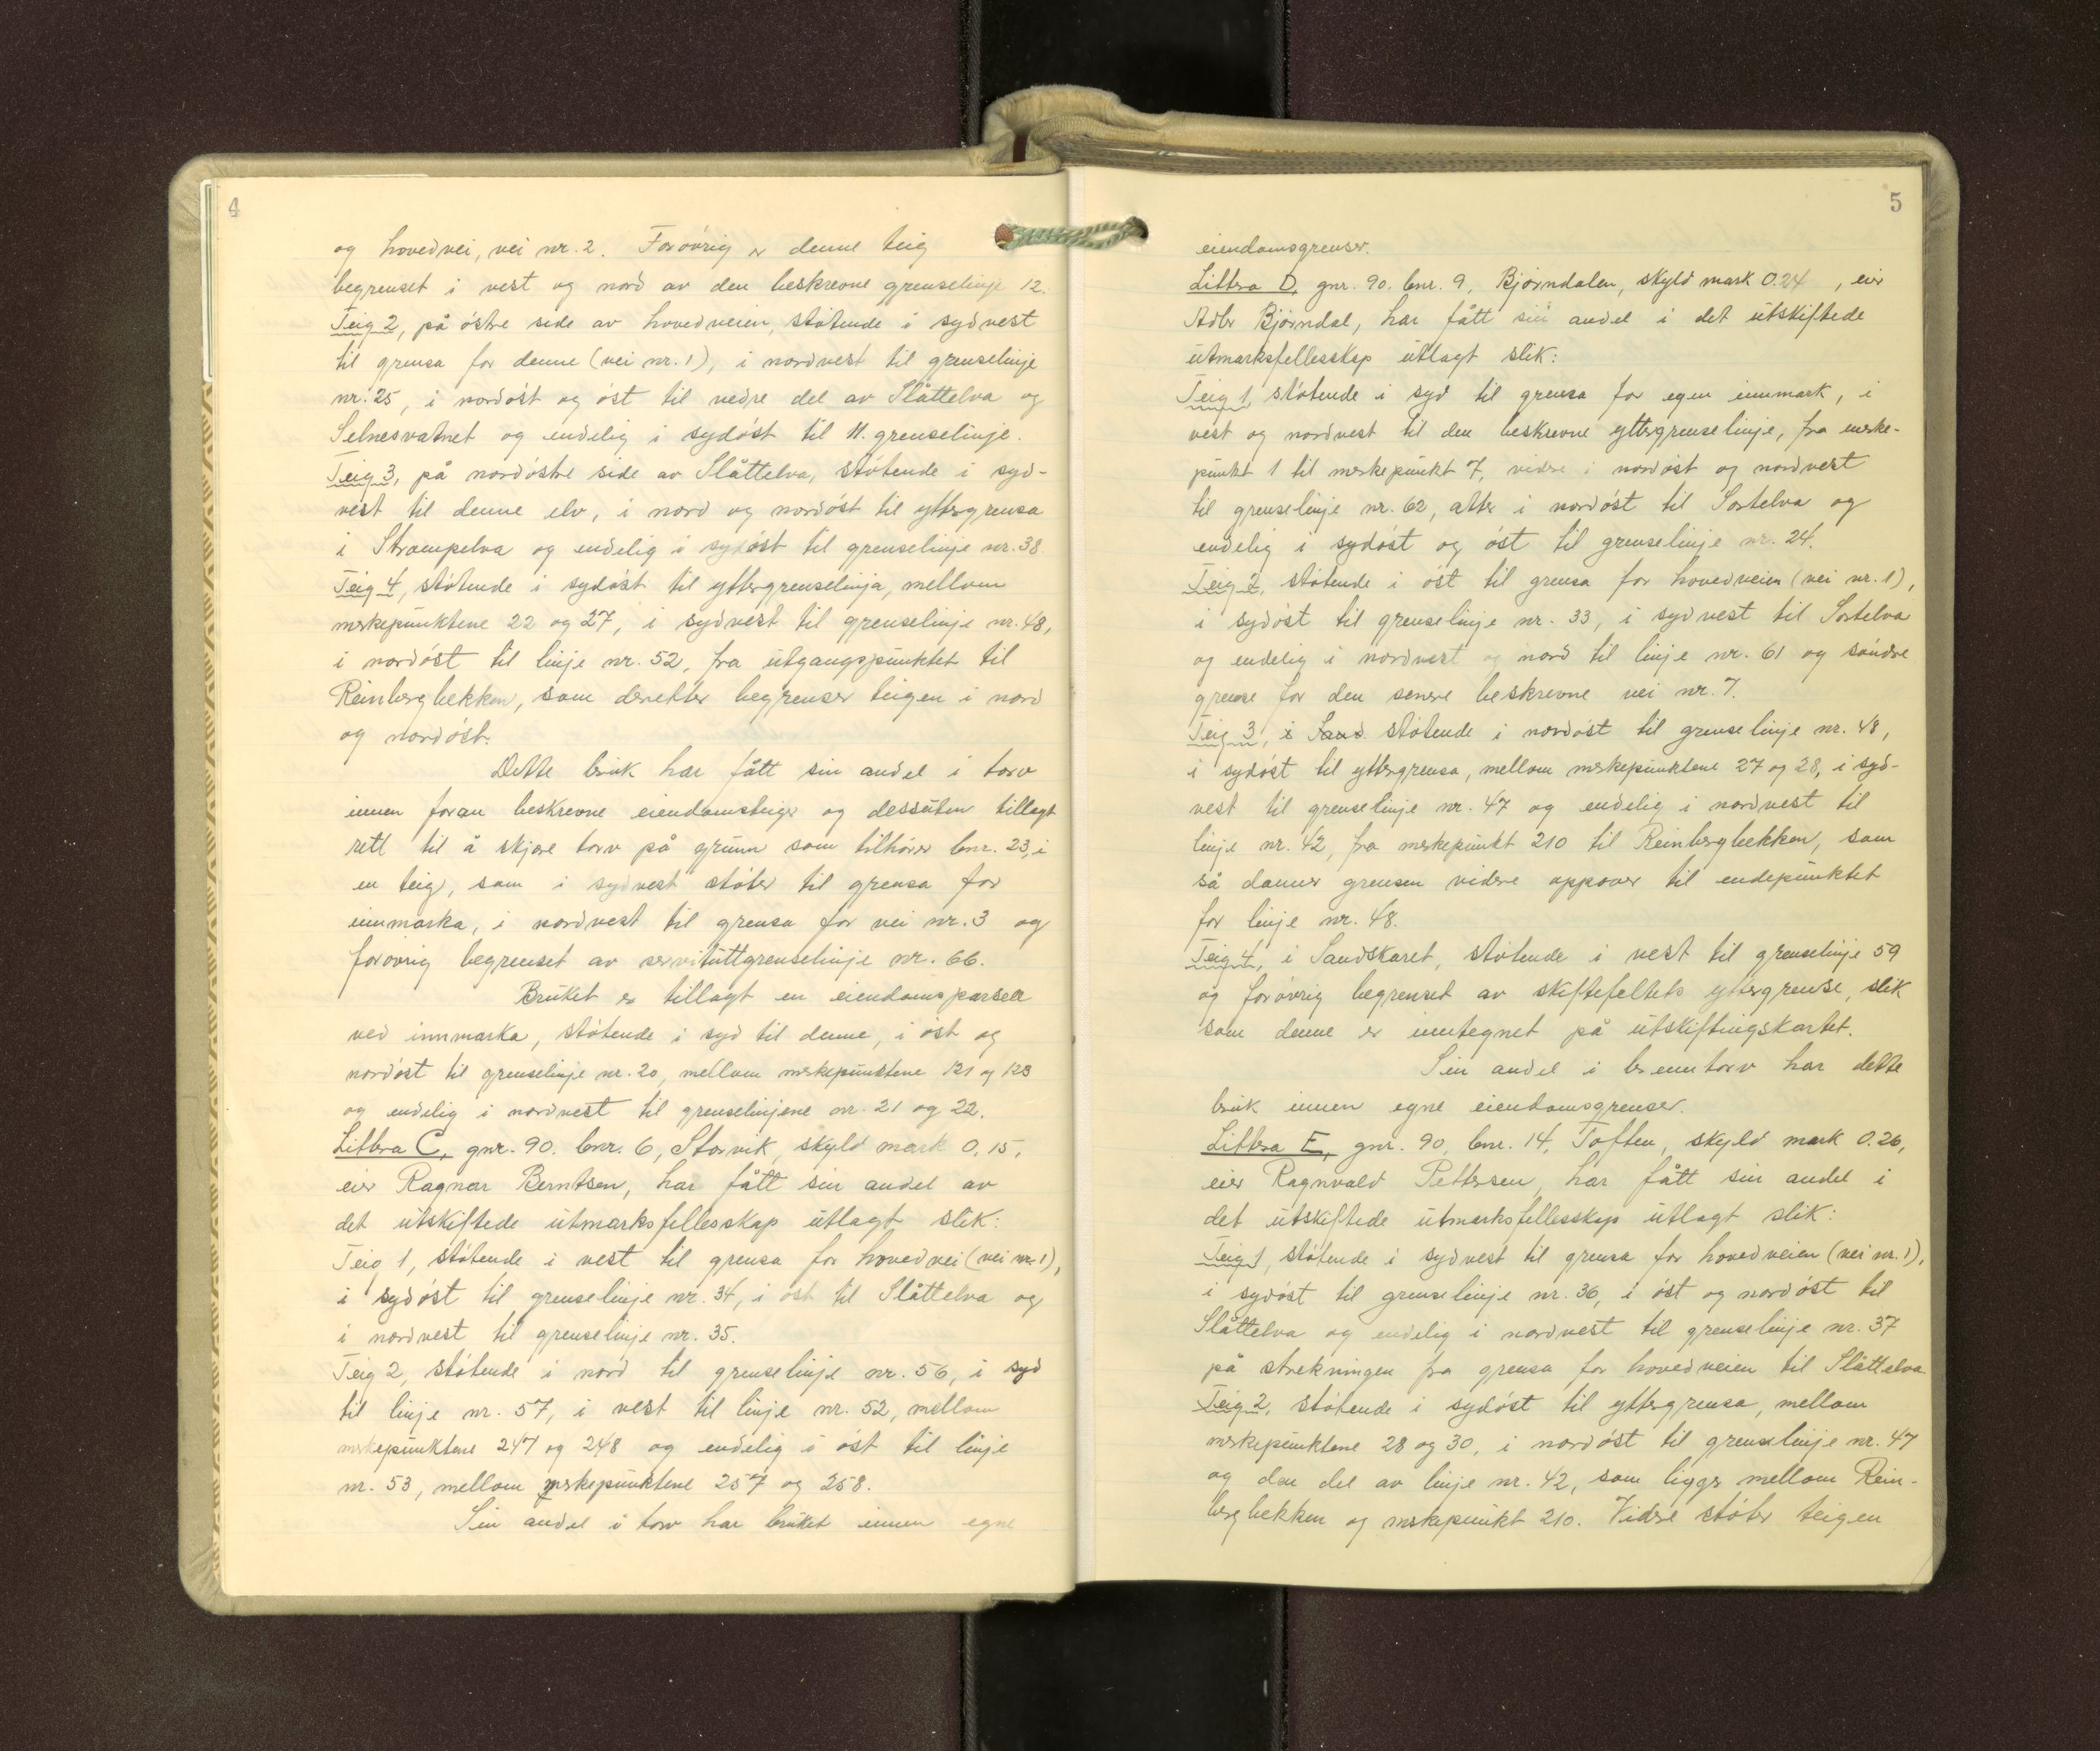 4
og hovedvei, vei nr. 2. Forøvrig er denne teig
begrenset i vest og nord av den beskrevne grenselinje 12.
Teig 2, på østre side av hovedveien, støtende i sydvest
til grensa for denne (vei nr. 1), i nordvest til grenselinje
nr. 25, i nordøst og øst til nedre del av Slåttelva og
Selnesvatnet og endelig i sydøst til 11. grenselinje.
Teig 3, på nordøstre side av Slåttelva, støtende i syd-
vest til denne elv, i nord og nordøst til yttergrensa
i Strompelva og endelig i sydøst til grenselinje nr. 38
Teig 4, støtende i sydøst til yttergrenselinja, mellom
merkepunktene 22 og 27, i sydvest til grenselinje nr. 48,
i nordøst til linje nr. 52, fra utgangspunktet til
Reinbergbekken, som deretter begrenser teigen i nord
og nordøst.
Dette bruk har fått sin andel i torv
innen foran beskrevne eiendomsteiger og dessuten tillagt
rett til å skjære torv på grunn som tilhører bnr. 23, i
en teig, som i sydvest støter til grensa for
innmarka, i nordvest til grensa for vei nr. 3 og
forøvrig begrenset av servituttgrenselinje nr. 66.
Bruket er tillagt en eiendomsparsell
ved innmarka, støtende i syd til denne, i øst og
nordøst til grenselinje nr. 20, mellom merkepunktene 121 og 123
og endelig i nordvest til grenselinjene nr. 21 og 22.
Littra C, gnr. 90. bnr. 6, Storvik, skyld mark 0,15,
eier Ragnar Berntsen, har fått sin andel av
det utskiftede utmarksfellesskap utlagt slik:
Teig 1, støtende i vest til grensa for hovedvei (vei nr. 1),
i sydøst til grenselinje nr. 34, i øst til Slåttelva og
i nordvest til grenselinje nr. 35.
Teig 2, støtende i nord til grenselinje nr. 56, i syd
til linje nr. 57, i vest til linje nr. 52, mellom
merkepunktene 247 og 248 og endelig i øst til linje
nr. 53, mellom merkepunktene 257 og 258.
Sin andel i torv har bruket innen egne
5
eiendomsgrenser.
Littra D, gnr. 90. bnr. 9, Bjørndalen, skyld mark 0.24, eier
Adler Bjørndal, har fått sin andel i det utskiftede
utmarksfellesskap utlagt slik:
Teig 1, støtende i syd til grensa for egen innmark, i
vest og nordvest til den beskrevne yttergrenselinje, fra merke-
punkt 1 til merkepunkt 7, videre i nordøst og nordvest
til grenselinje nr. 62, atter i nordøst til Sortelva og
endelig i sydøst og øst til grenselinje nr. 24.
Teig 2, støtende i øst til grensa for hovedveien (vei nr. 1),
i sydøst til grenselinje nr. 33, i sydvest til Sortelva
og endelig i nordvest og nord til linje nr. 61 og søndre
grense for den senere beskrevne vei nr. 7.
Teig 3, i Sand. støtende i nordøst til grenselinje nr. 48,
i sydøst til yttergrensa, mellom merkepunktene 27 og 28, i syd-
vest til grenselinje nr. 47 og endelig i nordvest til
linje nr. 42, fra merkepunkt 210 til Reinbergbekken, som
så danner grensen videre oppover til endepunktet
for linje nr. 48.
Teig 4, i Sandskaret, støtende i vest til grenselinje 59
og forøvrig begrenset av skiftefeltets yttergrense, slik
som denne er inntegnet på utskiftingskartet.
Sin andel i brenntorv har dette
bruk innen egne eiendomsgrenser.
Littra E, gnr. 90, bnr. 14, Toften, skyld mark 0.26,
eier Ragnvald Pettersen, har fått sin andel i
det utskiftede utmarksfellesskap utlagt slik:
Teig 1, støtende i sydvest til grensa for hovedveien (vei nr. 1),
i sydøst til grenselinje nr. 36, i øst og nordøst til
Slåttelva og endelig i nordvest til grenselinje nr. 37
på strekningen fra grensa for hovedveien til Slåttelva
Teig 2, støtende i sydøst til yttergrensa, mellom
merkepunktene 28 og 30, i nordøst til grenselinje nr. 47
og den del av linje nr. 42, som ligger mellom Rein-
bergbekken og merkepunkt 210. Videre støter teigen